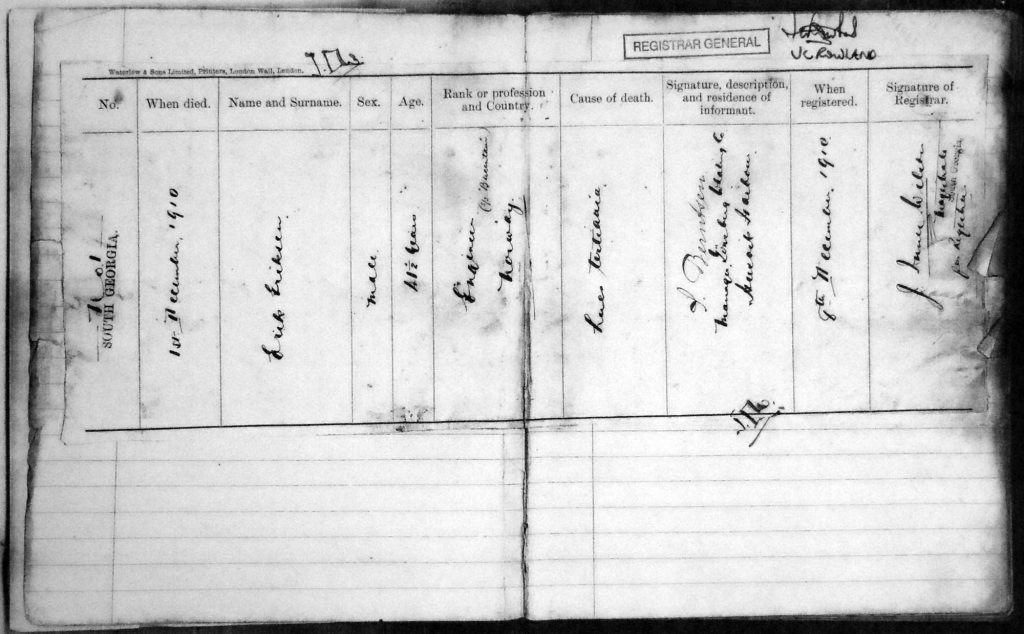 REGISTRAR GENERAL
J C ROWLAND
Waterlow & Sons Limited, Printers, London Wall, London.
No.
When died.
Name and Surname.
Sex.
Age.
Rank or profession
and Country.
Cause of death.
Signature, description,
and residence of
informant.
When
registered.
Signature of
Registrar.
No 1
SOUTH GEORGIA.
1st December, 1910
Erick Eriksen
Male
Years
Engineer
Norway
Lues tertiaria
Manager
Harbour
9th December, 1910
J. Innes Wilson
Magistrate
South Georgia